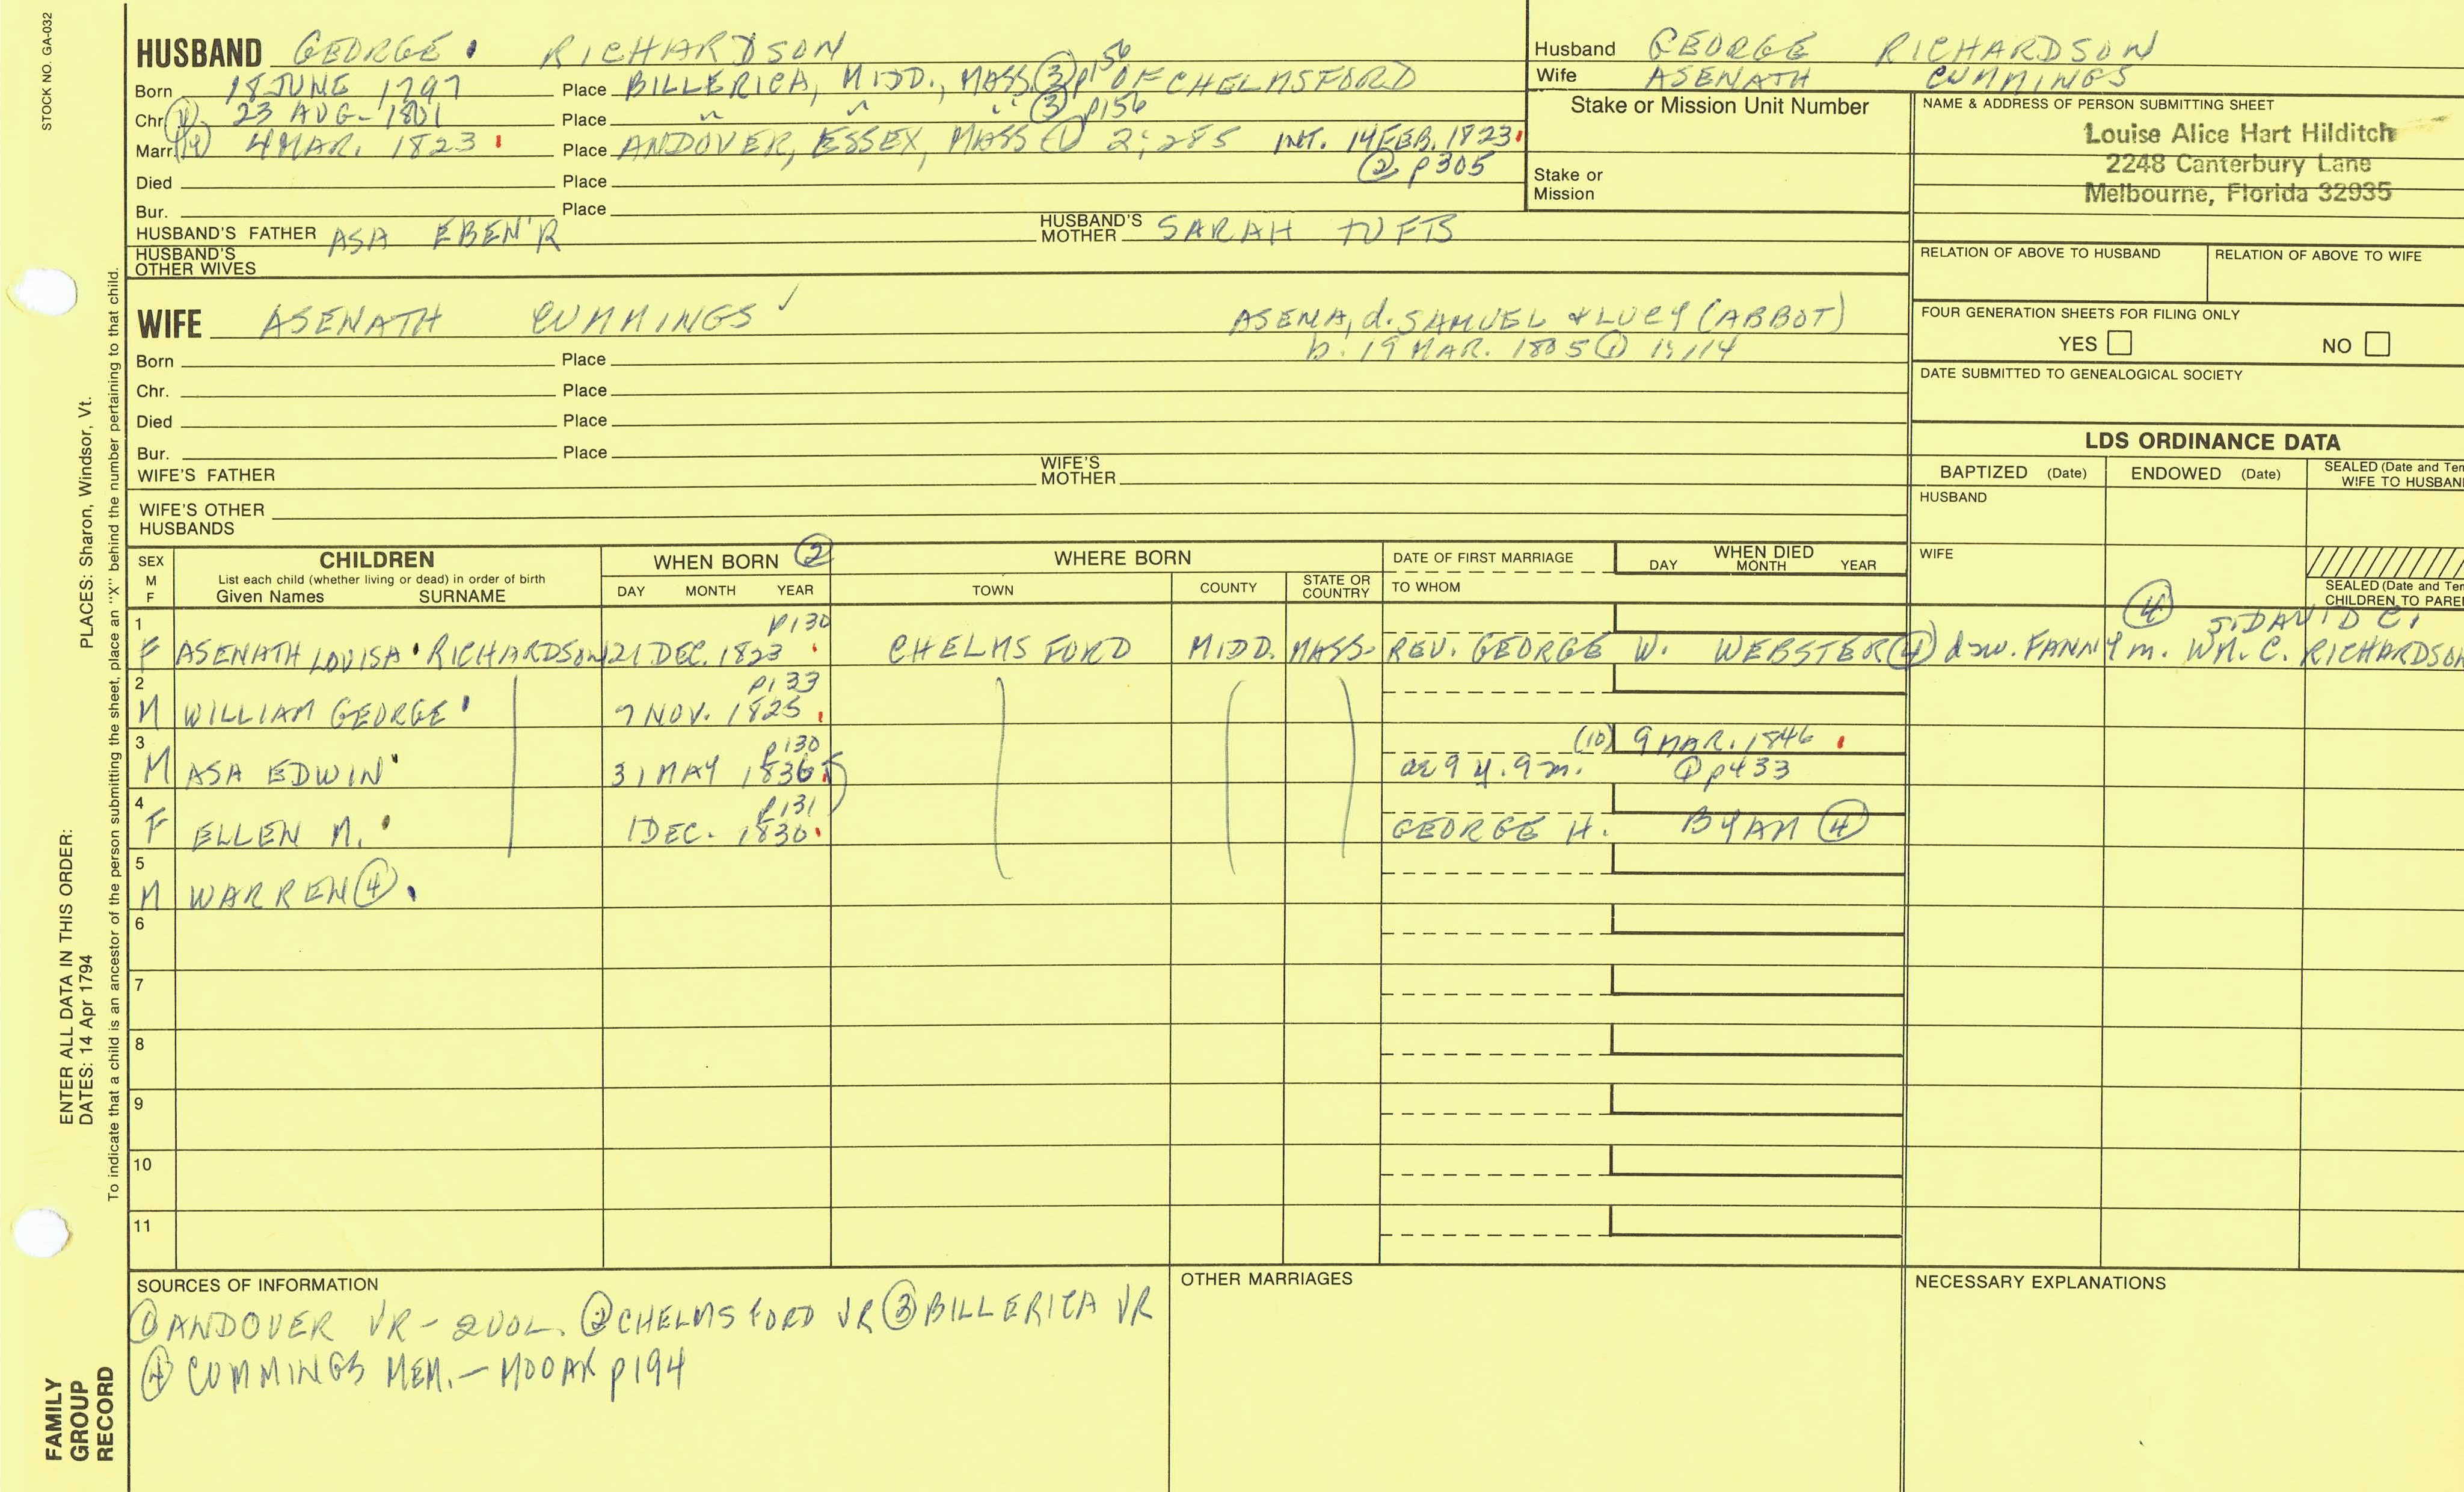 STOCK NO. GA-032
HUSBAND GEORGE RICHARDSON
Born 18 JUNE 1797 Place BILLERICA, MIDD., MASS. ③ p156 OF CHELMSFORD
Chr. 23 AUG- 1801 Place " " " ③ p156
Marr. 4 MAR. 1823 Place ANDOVER, ESSEX, MASS ① 2;285 INT. 14 FEB. 1823
② p305
Died Place
Bur. Place
HUSBAND'S FATHER ASA EBEN'R HUSBAND'S MOTHER SARAH TUFTS
HUSBAND'S OTHER WIVES
WIFE ASENATH CUMMINGS ✓ ASENA, d. SAMUEL & LUCY (ABBOT)
b. 19 MAR. 1805 ① 1;114
Born Place
Chr. Place
Died Place
Bur. Place
WIFE'S FATHER WIFE'S MOTHER
WIFE'S OTHER HUSBANDS
Husband GEORGE RICHARDSON
Wife ASENATH CUMMINGS
Stake or Mission Unit Number
Stake or Mission
NAME & ADDRESS OF PERSON SUBMITTING SHEET
Louise Alice Hart Hilditch
2248 Canterbury Lane
Melbourne, Florida 32935
RELATION OF ABOVE TO HUSBAND RELATION OF ABOVE TO WIFE
FOUR GENERATION SHEETS FOR FILING ONLY
YES NO
DATE SUBMITTED TO GENEALOGICAL SOCIETY
LDS ORDINANCE DATA
BAPTIZED (Date) ENDOWED (Date) SEALED (Date and Tem
WIFE TO HUSBAN
HUSBAND
WIFE
SEALED (Date and Tem
CHILDREN TO PARE
SEX M F CHILDREN WHEN BORN ② WHERE BORN DATE OF FIRST MARRIAGE WHEN DIED
List each child (whether living or dead) in order of birth
Given Names SURNAME DAY MONTH YEAR TOWN COUNTY STATE OR COUNTRY TO WHOM DAY MONTH YEAR
1 p130 ④ S. DAVID C.
F ASENATH LOUISA RICHARDSON 21 DEC. 1823 CHELMSFORD MIDD. MASS. REV. GEORGE W. WEBSTER ④ FANNY m. WM. C. RICHARDSON
2 p133
M WILLIAM GEORGE 7 NOV. 1825
3 p130 (10) 9 MAR. 1846
M ASA EDWIN 31 MAY 1836 ae 9 y. 9 m. ① p433
4 p131
F ELLEN M. 1 DEC. 1830 GEORGE H. BYAM ④
5
M WARREN ④
6
7
8
9
10
11
SOURCES OF INFORMATION OTHER MARRIAGES NECESSARY EXPLANATIONS
① ANDOVER VR- 2 VOL. ② CHELMSFORD VR ③ BILLERICA VR
④ CUMMINGS MEM.- MOOAR p194
PLACES: Sharon, Windsor, Vt.
ENTER ALL DATA IN THIS ORDER:
DATES: 14 Apr 1794
To indicate that a child is an ancestor of the person submitting the sheet, place an "X" behind the number pertaining to that child.
FAMILY
GROUP
RECORD